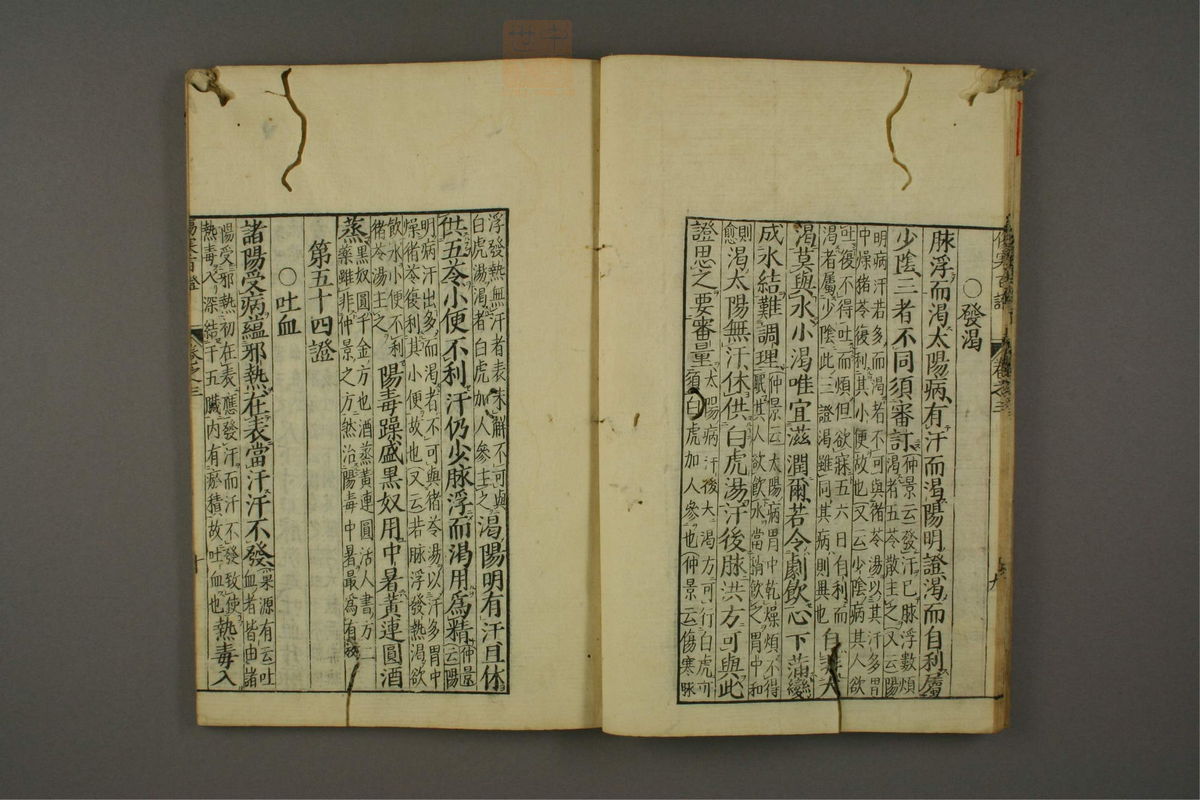 ○發渴
脉浮而渴太陽病有汗而渴陽明證渴而自利屬
少陰三者不同須審訂
仲景云發汗已脉浮數煩
渴者五苓散主之又云陽
明病汗若多而渴者不可與猪苓湯以其汗多胃
中燥猪苓復利其小便故也又云少陰病其人欲
吐復不得吐而煩但欲寐五六日自利而
渴者屬少陰此三證渴雖同其病則異也
大
渴莫與水小渴唯宜滋潤爾若令劇飲心下滿變
成水結難調理
仲景云太陽病胃中乾燥煩不得
眠其人欲飲水當稍飲之胃中和
則
愈
渴太陽無汗休供白虎湯汗後脉洪方可與此
證思之要審量
太陽病汗後大渴方可行白虎可
須白虎加人參也仲景云傷寒脉
卷之三
九
浮發熱無汗者表未解不可與
白虎湯渴者白虎加人參主之
渴陽明有汗且休
供五苓小便不利汗仍少脉浮而渴用爲精
仲景
云陽
明病汗出多而渴者不可與猪苓湯以汗多胃中
燥猪苓復利其小便故也又云若脉浮發熱渴欲
飲水小便不利
猪苓湯主之
陽毒躁盛黑奴用中暑黃連圓酒
蒸
黑奴圓千金方也酒蒸黃連圓活人書方二
藥雖非仲景之方然治陽毒中暑最爲有效
第五十四證
○吐血
諸陽受病蘊邪熱在表當汗汗不發
巢源有云吐
血者皆由諸
陽受邪熱初在表應發汗而汗不發致使
熱毒入深結于五臟内有瘀積故吐血也
熱毒入
卷之三
十